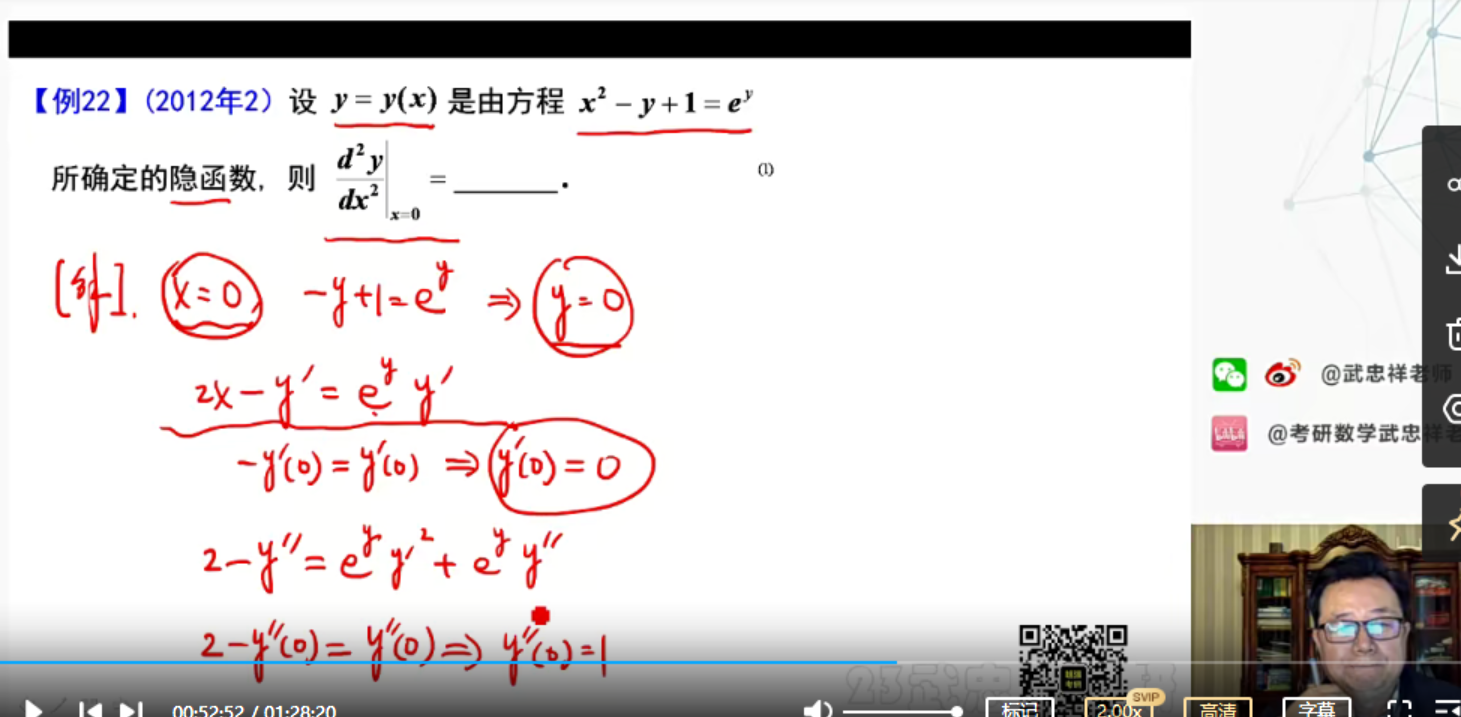 【例22】(2012年2) 设 y = y(x) 是由方程 x² − y + 1 = eʸ
所确定的隐函数, 则 d²y/dx²|ₓ₌₀ = ______.
(1)
[解]. x = 0 −y+1 = eʸ ⇒ y = 0
2x − y′ = eʸ y′
−y′(0) = y′(0) ⇒ y′(0) = 0
2 − y″ = eʸ y′² + eʸ y″
2 − y″(0) = y″(0) ⇒ y″(0) = 1
@武忠祥老师
@考研数学武忠祥老
00:52:52 / 01:28:20
标记
2.00x
SVIP
高清
字幕